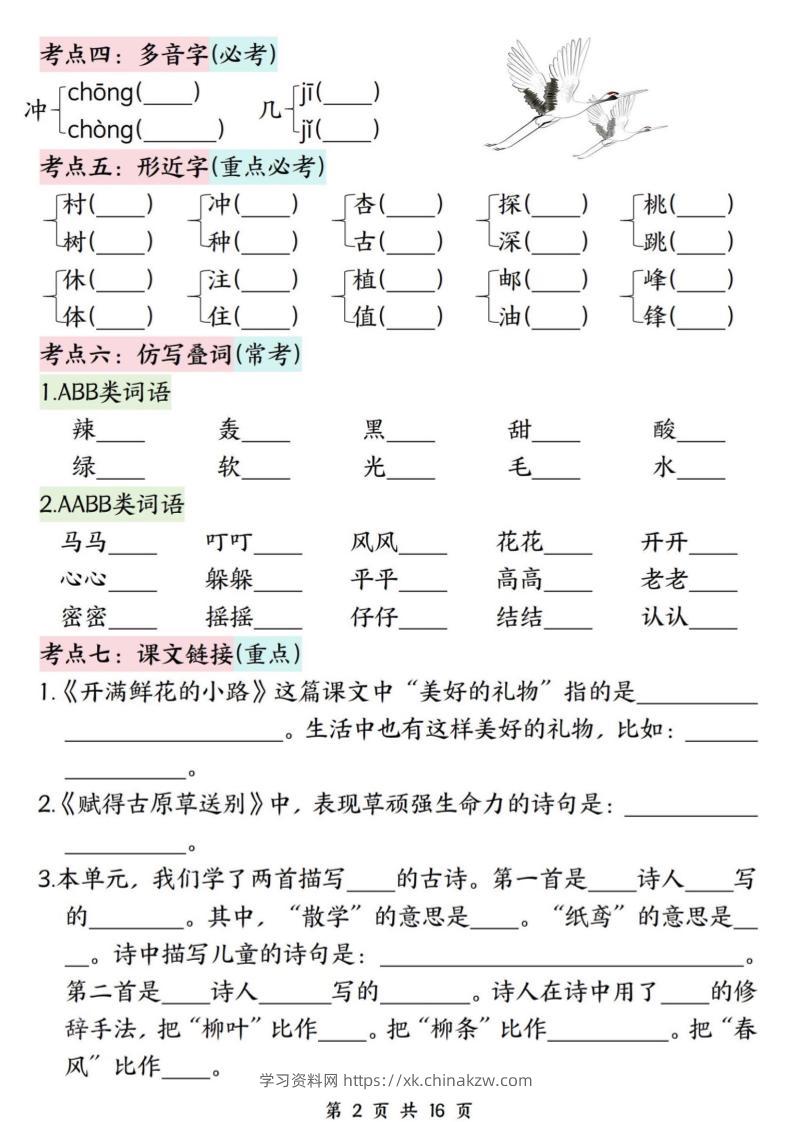 考点四：多音字(必考)
冲 chōng(____) 几 jī(____)
chòng(______) jǐ(____)
考点五：形近字(重点必考)
村(____) 冲(____) 杏(____) 探(____) 桃(____)
树(____) 种(____) 古(____) 深(____) 跳(____)
休(____) 注(____) 植(____) 邮(____) 峰(____)
体(____) 住(____) 值(____) 油(____) 锋(____)
考点六：仿写叠词(常考)
1.ABB类词语
辣____ 轰____ 黑____ 甜____ 酸____
绿____ 软____ 光____ 毛____ 水____
2.AABB类词语
马马____ 叮叮____ 风风____ 花花____ 开开____
心心____ 躲躲____ 平平____ 高高____ 老老____
密密____ 摇摇____ 仔仔____ 结结____ 认认____
考点七：课文链接(重点)
1.《开满鲜花的小路》这篇课文中“美好的礼物”指的是__________
__________________。生活中也有这样美好的礼物，比如：______
__________。
2.《赋得古原草送别》中，表现草顽强生命力的诗句是：___________
__________。
3.本单元，我们学了两首描写____的古诗。第一首是____诗人____写
的________。其中，“散学”的意思是____。“纸鸢”的意思是__
__。诗中描写儿童的诗句是：______________________________。
第二首是____诗人______写的________。诗人在诗中用了____的修
辞手法，把“柳叶”比作____。把“柳条”比作__________。把“春
风”比作____。
学习资料网 https://xk.chinakzw.com
第 2 页 共 16 页